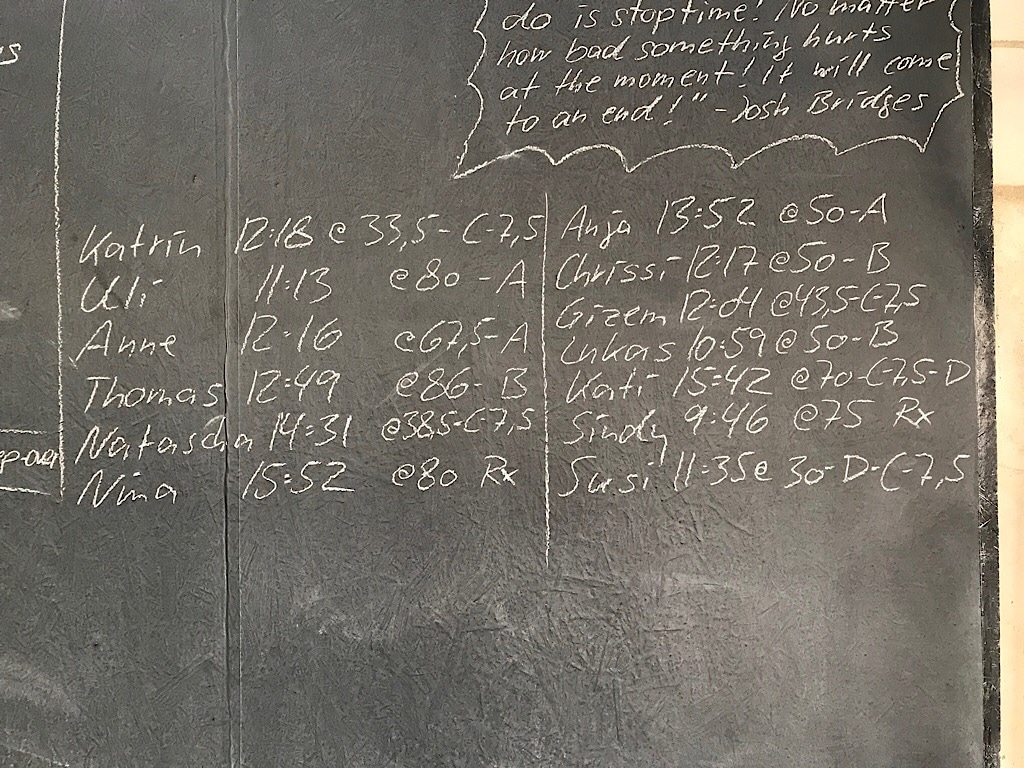 do is stop time! No matter
how bad something hurts
at the moment! It will come
to an end!" - Josh Bridges
Katrin 12:18 @ 33,5 - C-7,5
Uli 11:13 @80 - A
Anne 12:16 @67,5 - A
Thomas 12:49 @86 - B
Natascha 14:31 @38,5-C-7,5
Nina 15:52 @80 Rx
Anja 13:52 @50-A
Chrissi 12:17 @50-B
Gizem 12:01 @43,5-C-7,5
Lukas 10:59 @50-B
Kati 15:42 @70-C-7,5-D
Sindy 9:46 @75 Rx
Susi 11:35 @ 30-D-C-7,5